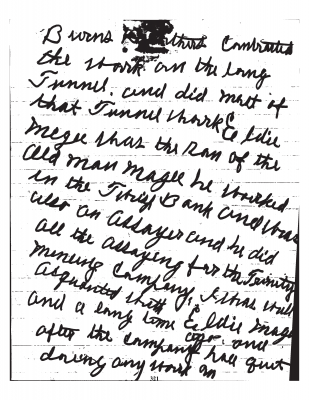 Burns Brothers Contracted
the work on the long
Tunnel. and did most of
that Tunnel work Eddie
Megee was the Son of the
old man Magee he worked
in the Bank and was
also an Assayer and he did
all the assaying for the Trinity
Mineing Company, I was well
Aquainted with Eddie Magee
and a long time ago. and
after the Company had quit
doing any work on
321